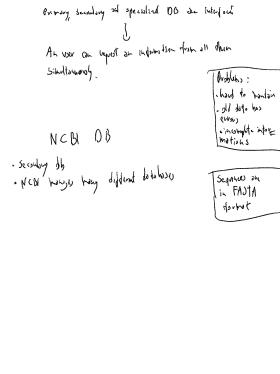 primary, secondary and specialized DB an interface
An user can request an information from all them
simultaneously.
Problems:
• hard to maintain
• old data has
errors
• incomplete infor
mations
NCBI DB
• Secondary db
• NCBI manages many different databases
Sequences are
in FASTA
format